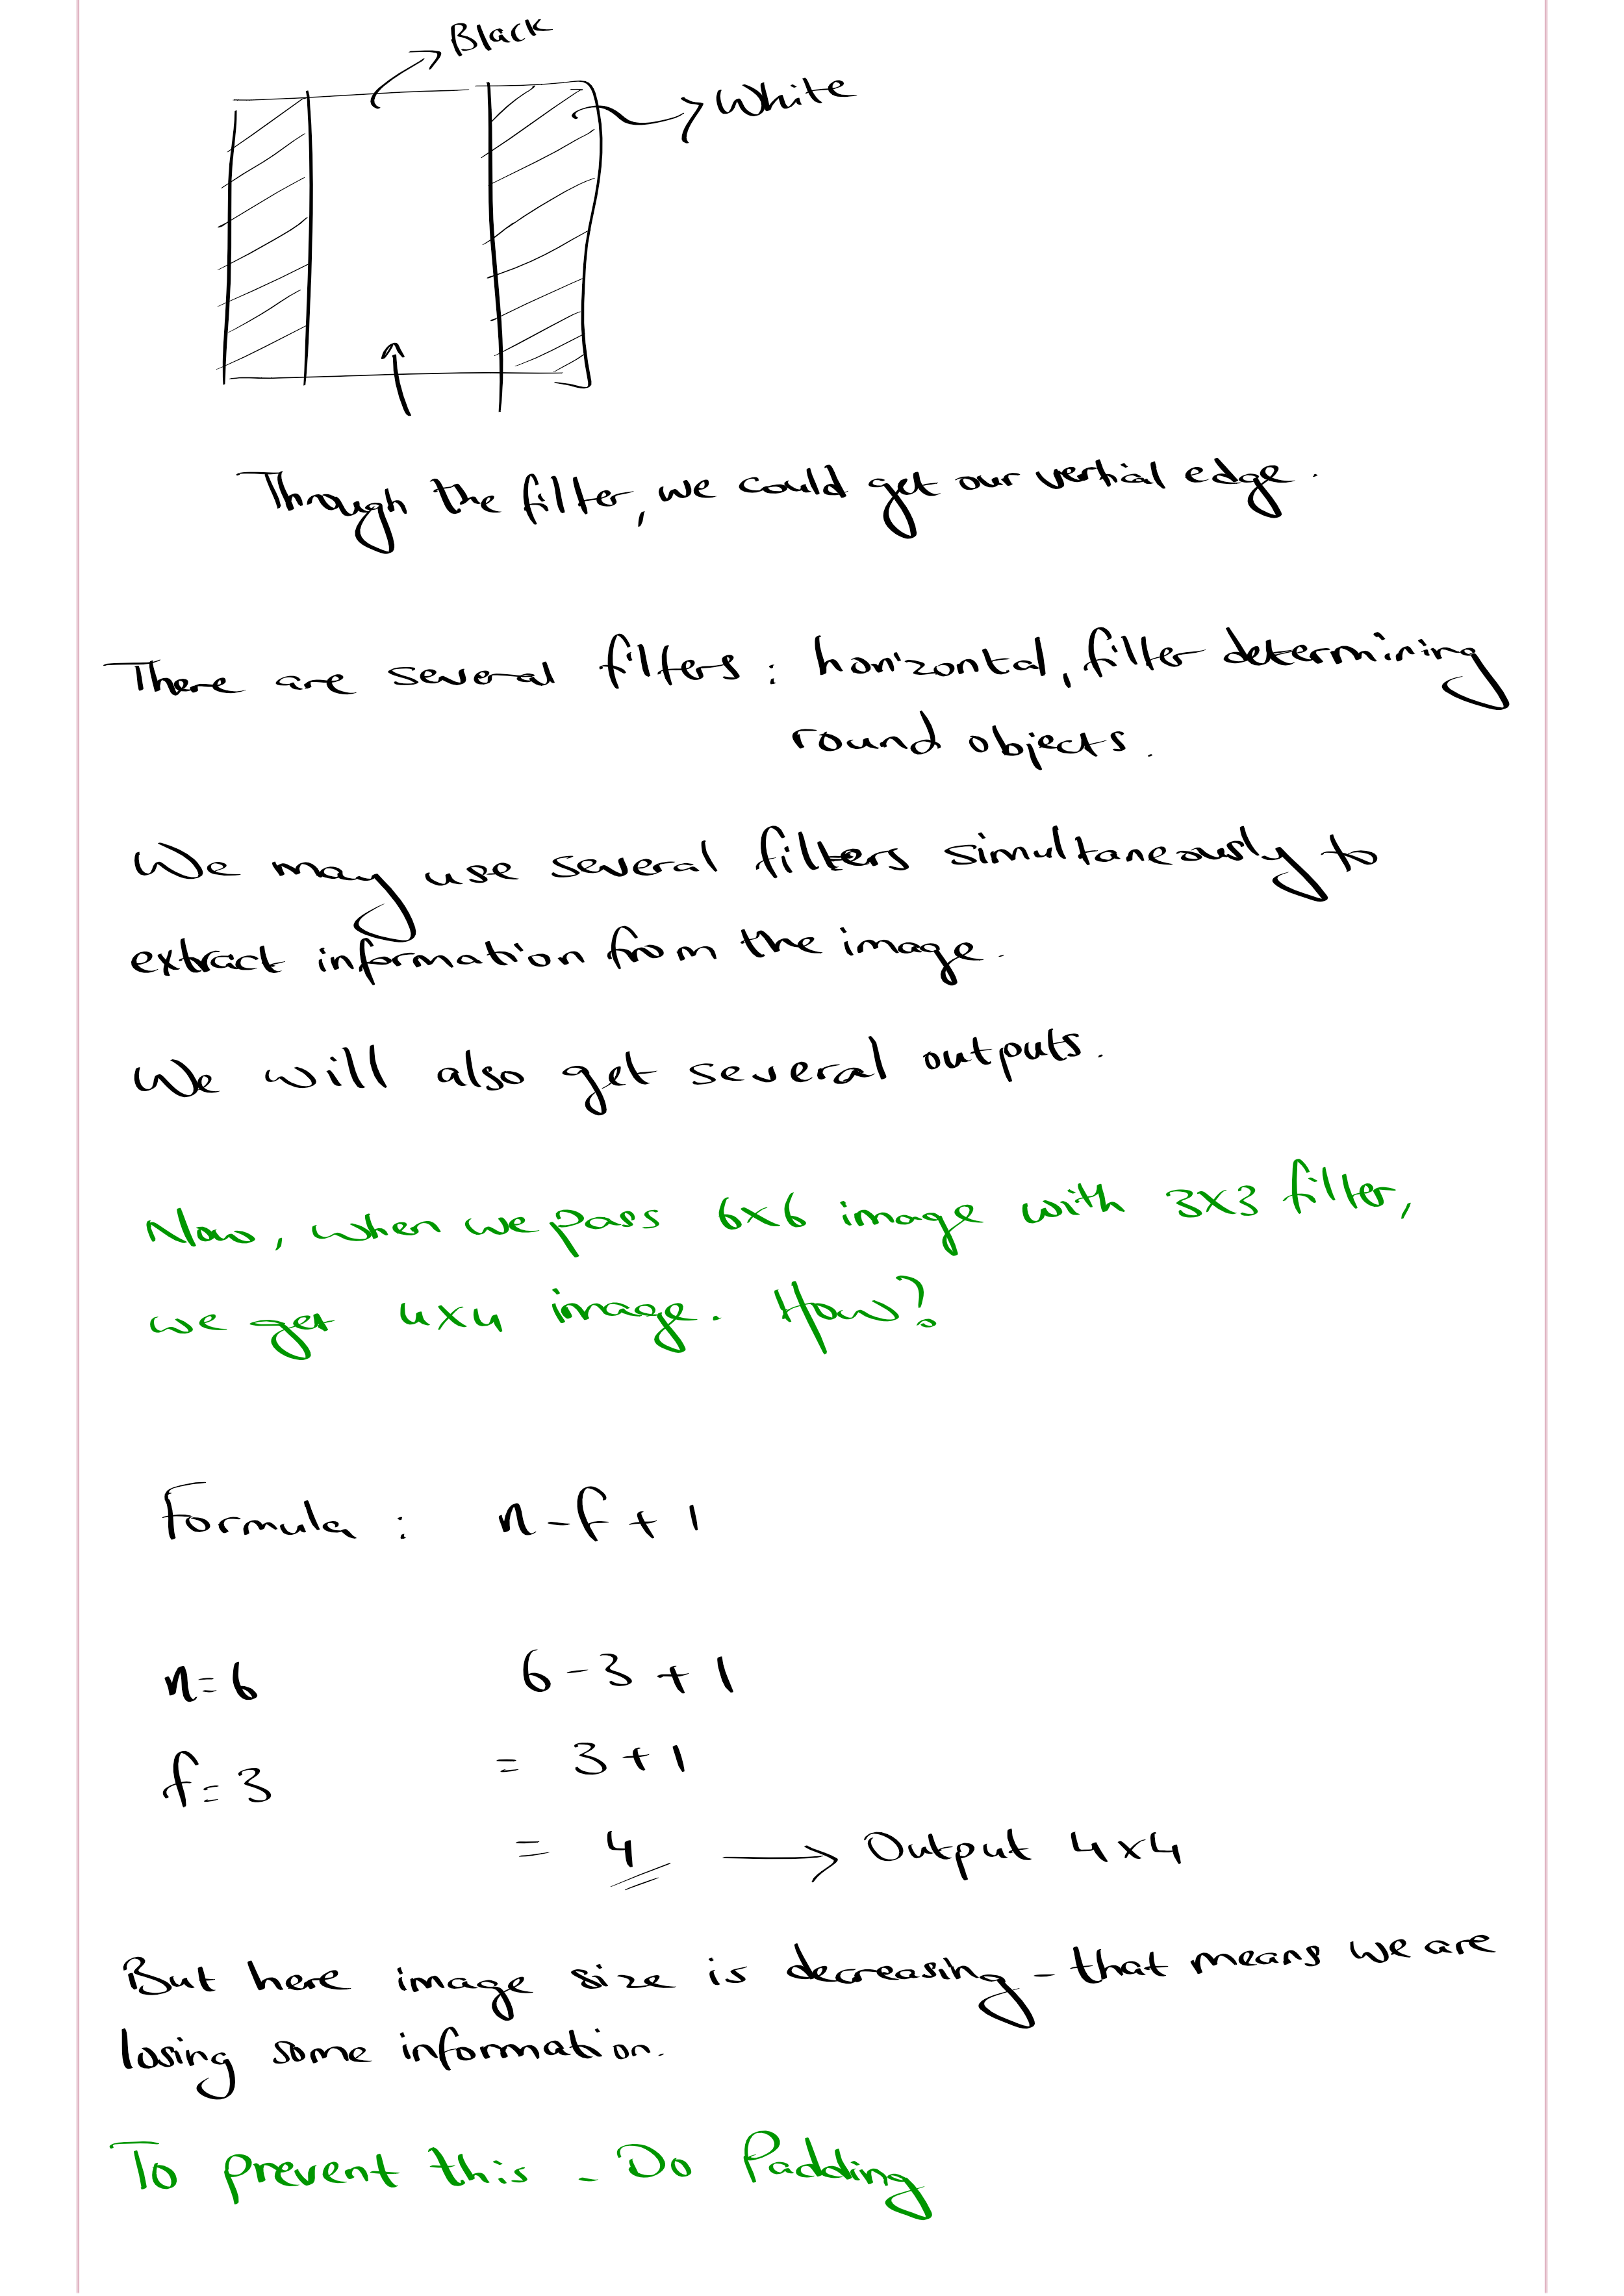 Black
White
Through the filter, we could get our vertial edge.
There are several filters : horizontal, filter determining
round objects.
We may use several filters simultaneously to
extract information from the image.
We will also get several outputs.
Now, when we pass 6x6 image with 3x3 filter,
we get 4x4 image. How?
Formula : n-f+1
n=6 6-3+1
f=3 = 3+1
= 4 → Output 4x4
But here image size is decreasing - that means we are
losing some information.
To prevent this - Do Padding